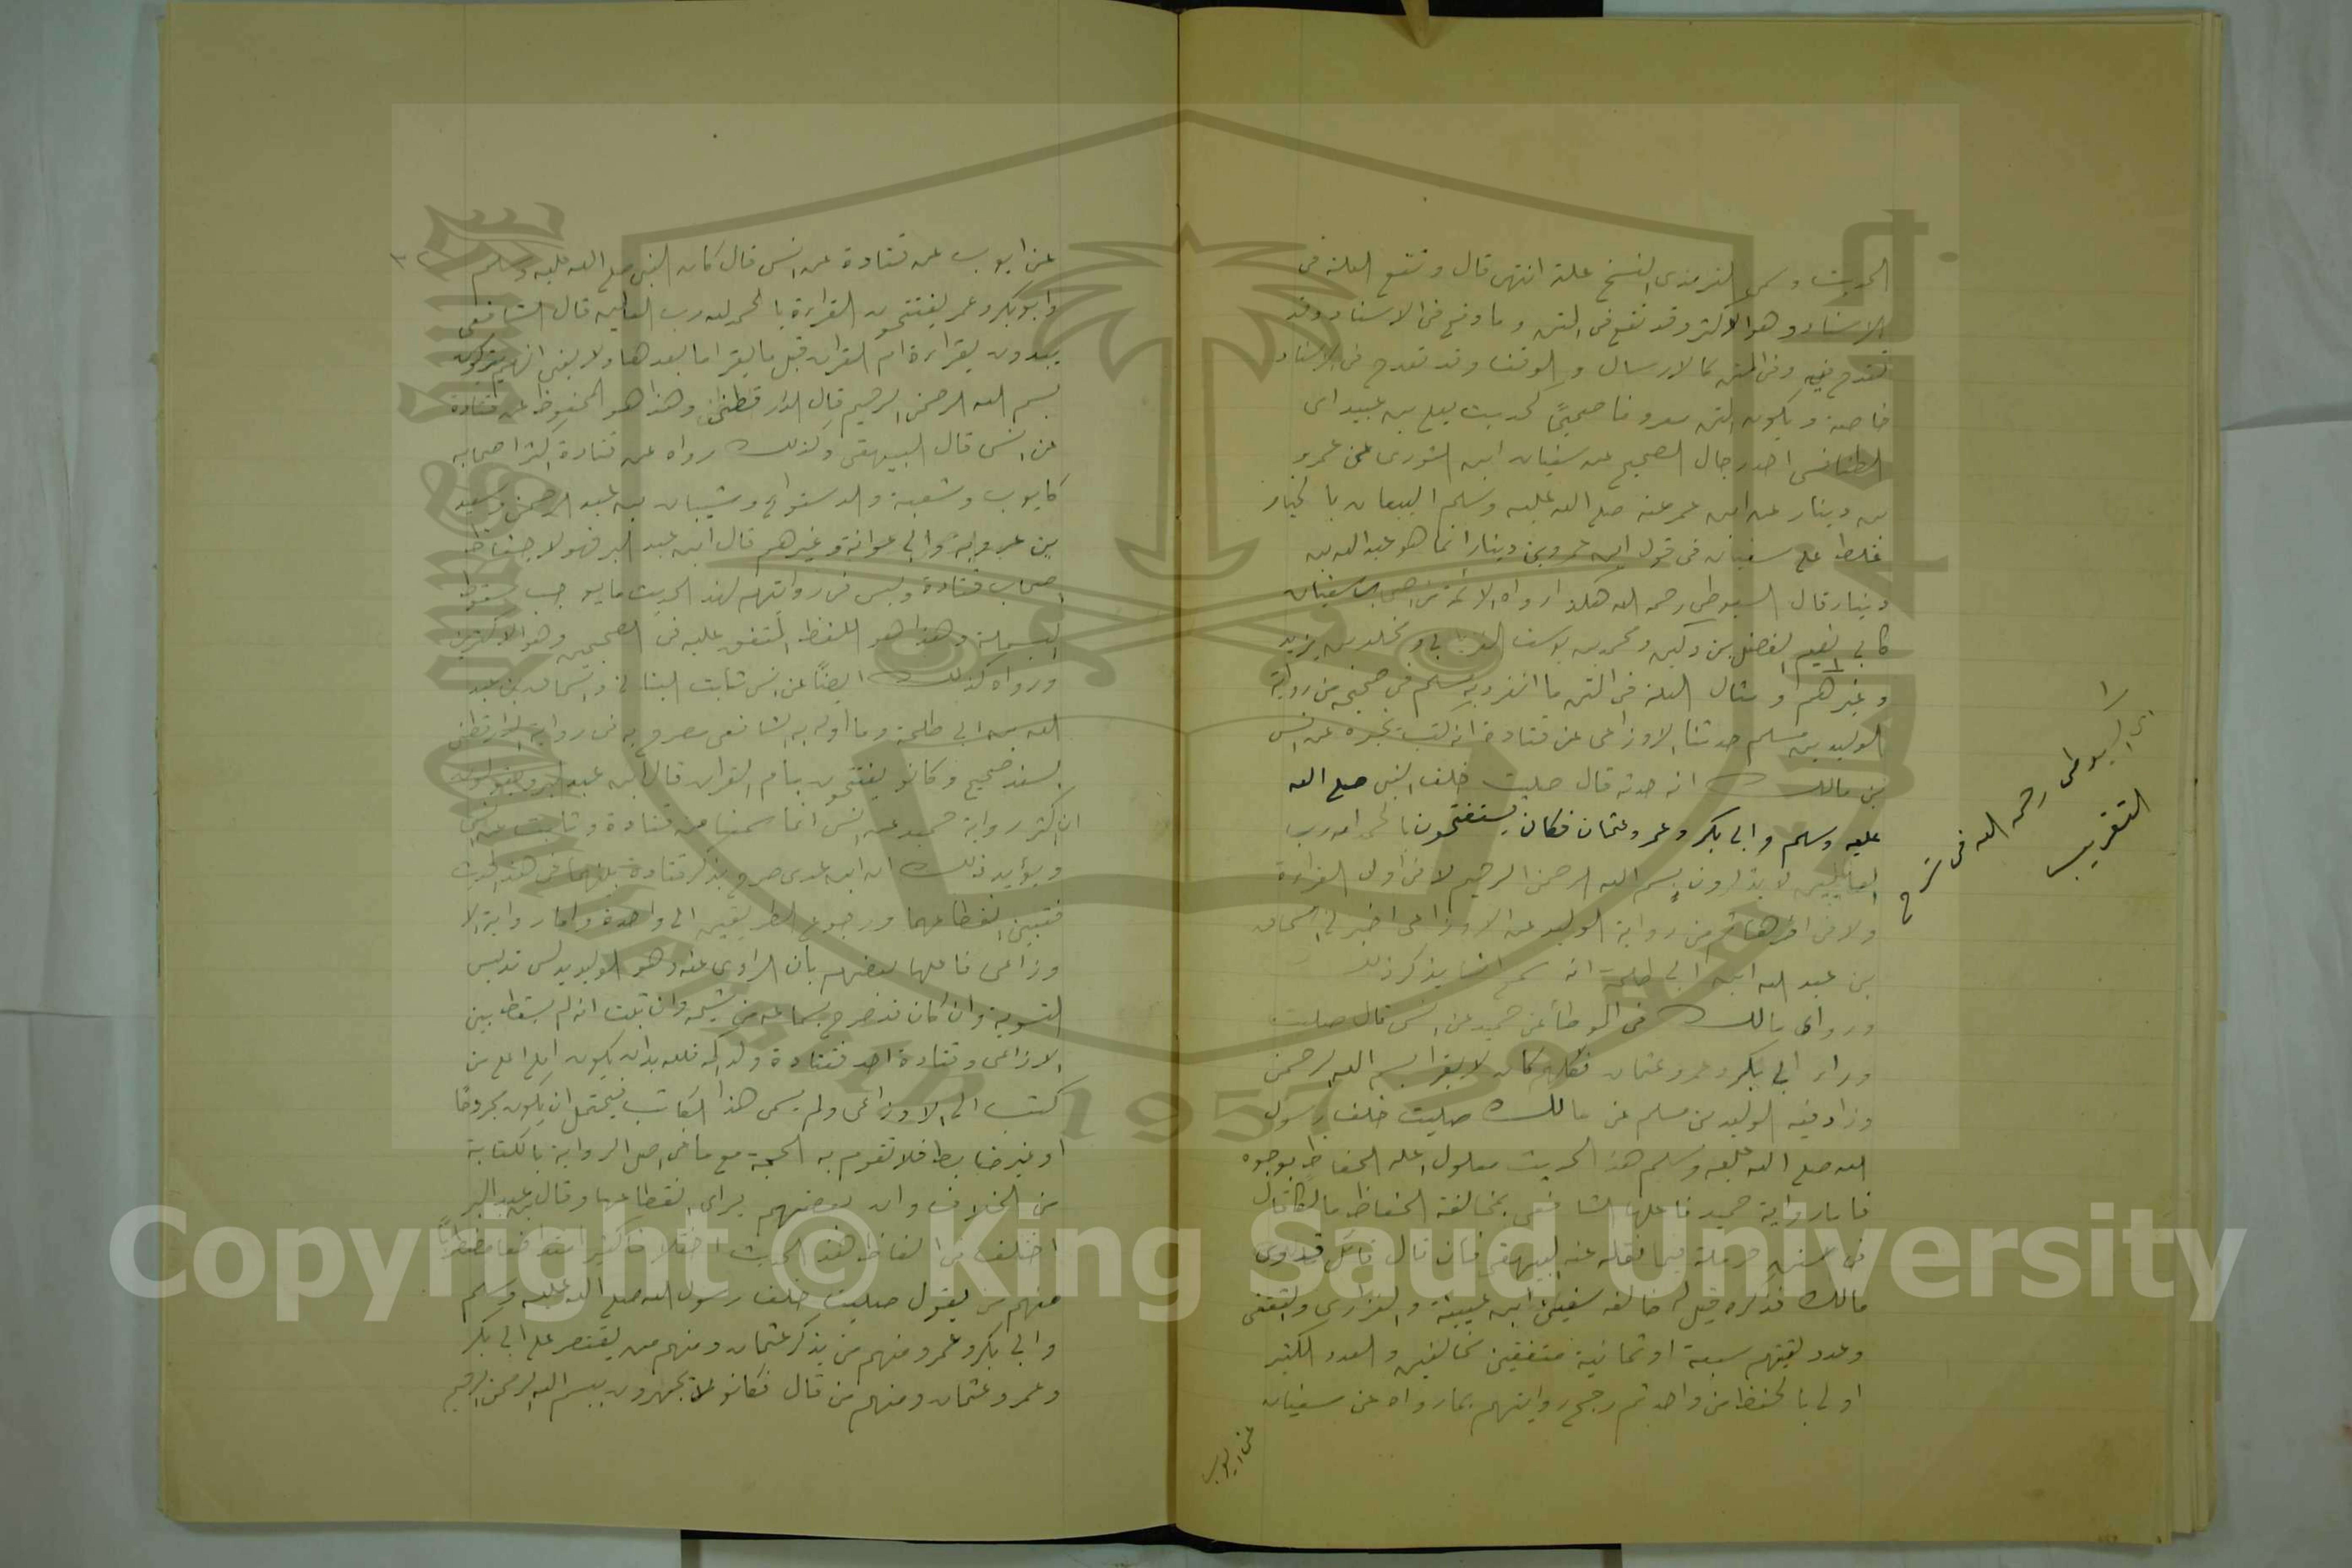 الحديث وسمى الترمذي النسخ علة انتهى قال وتقع العلة في
الاسناد وهو الاكثر وقد تقع في المتن وما وقع في الاسناد وقد
تقدح فيه وفي المتن كالارسال والوقف وقد تقدح في الاسناد
خاصة ويكون المتن معروفا صحيحًا كحديث يعلى بن عبيد اى
الطنافسى احد رجال الصحيح عن سفيان ابن الثورى عن عمرو
بن دينار عن ابن عمر عنه صلى الله عليه وسلم البيعان بالخيار
غلط على سفيان في قوله اى عمرو بن دينار انما هو عبد الله بن
دينار قال السيوطى رحمه الله هكذا رواه الائمة من اصحاب سفيان
كابى نعيم الفضل بن دكين ومحمد بن يوسف الفريابى ومخلد بن يزيد
وغيرهم ومثال العلة في المتن ما انفرد به مسلم في صحيحه من رواية
الوليد بن مسلم حدثنا الاوزاعى عن قتادة انه كتب يخبره عن انس
بن مالك انه حدثه قال صليت خلف النبى صلى الله
عليه وسلم وابى بكر وعمر وعثمان فكان يستفتحون بالحمد لله رب
العالمين لا يذكرون بسم الله الرحمن الرحيم لا في اول القراءة
ولا في اخرها ثم من رواية الوليد عن الاوزاعى اخبرنى اسحاق
بن عبد الله ابن ابى طلحة انه سمع انسا يذكر ذلك
وروى مالك في الموطأ عن حميد عن انس قال صليت
وراء ابى بكر وعمر وعثمان فكلهم كان لا يقرا بسم الله الرحمن
وزاد فيه الوليد بن مسلم عن مالك صليت خلف رسول
الله صلى الله عليه وسلم هذا الحديث معلول اعله الحفاظ بوجوه
فاما رواية حميد فاعلها الشافعى بمخالفة الحفاظ مالكا فقال
في سنن حرملة فيما نقله عنه البيهقى فان قال قائل قد روى
مالك فذكره قيل له خالفه سفين ابن عيينة والفزارى والثقفى
وعدد لقيتهم سبعة او ثمانية متفقين مخالفين والعدد الكثير
اولى بالحفظ من واحد ثم رجح روايتهم بما رواه عن سفيان
عن ايوب
اى السيوطى رحمه الله فى شرح
التقريب
عن ايوب عن قتادة عن انس قال كان النبى صلى الله عليه وسلم
وابو بكر وعمر يفتتحون القراءة بالحمد لله رب العالمين قال الشافعى
يبدون بقراءة ام القران قبل ما يقرا ما بعدها ولا يعنى انهم يتركون
بسم الله الرحمن الرحيم قال الدارقطنى وهذا هو المحفوظ عن قتادة
عن انس قال البيهقى وكذلك رواه عن قتادة اكثر اصحابه
كايوب وشعبة والدستوائى وشيبان بن عبد الرحمن وسعيد
بن عروبة وابى عوانة وغيرهم قال ابن عبد البر فهولاء حفاظ
اصحاب قتادة وليس في روايتهم لهذا الحديث ما يوجب سقوط
البسملة وهذا هو اللفظ المتفق عليه في الصحيحين وهو الاكثرين
ورواه كذلك ايضًا عن انس ثابت البنانى واسحاق بن عبد
الله بن ابى طلحة وما اوله به الشافعى مصرح به في رواية الدارقطنى
بسند صحيح وكانوا يفتتحون بام القران قال ابن عبد البر ويقولون
ان اكثر رواية حميد عن انس انما سمعها من قتادة وثابت عن انس
ويؤيد ذلك ان ابن عدى صرح بذكر قتادة بينهما في هذا الحديث
فتبين انقطاعها ورجوع الطريقين الى واحدة واما رواية الا
وزاعى فاعلها بعضهم بان الراوى عنه وهو الوليد يدلس تدليس
التسوية وان كان قد صرح بسماعه من شيخه وان ثبت انه لم يسقط بين
الاوزاعى وقتادة احد فقتادة ولد اكمه فلا بد ان يكون املى على من
كتب الى الاوزاعى ولم يسمى هذا الكاتب فيحتمل ان يكون مجروحًا
او غير ضابط فلا تقوم به الحجة مع ما في اصل الرواية بالكتابة
من الخلاف وان بعضهم يراى انقطاعها وقال ابن عبد البر
اختلف في الفاظ هذا الحديث اختلافا كثيرا متدافعا مضطربًا
منهم من يقول صليت خلف رسول الله صلى الله عليه وسلم
وابى بكر وعمر ومنهم من يذكر عثمان ومنهم من يقتصر على ابى بكر
وعمر وعثمان ومنهم من قال فكانوا لا يجهرون ببسم الله الرحمن الرحيم
Copyright © King Saud University
1957